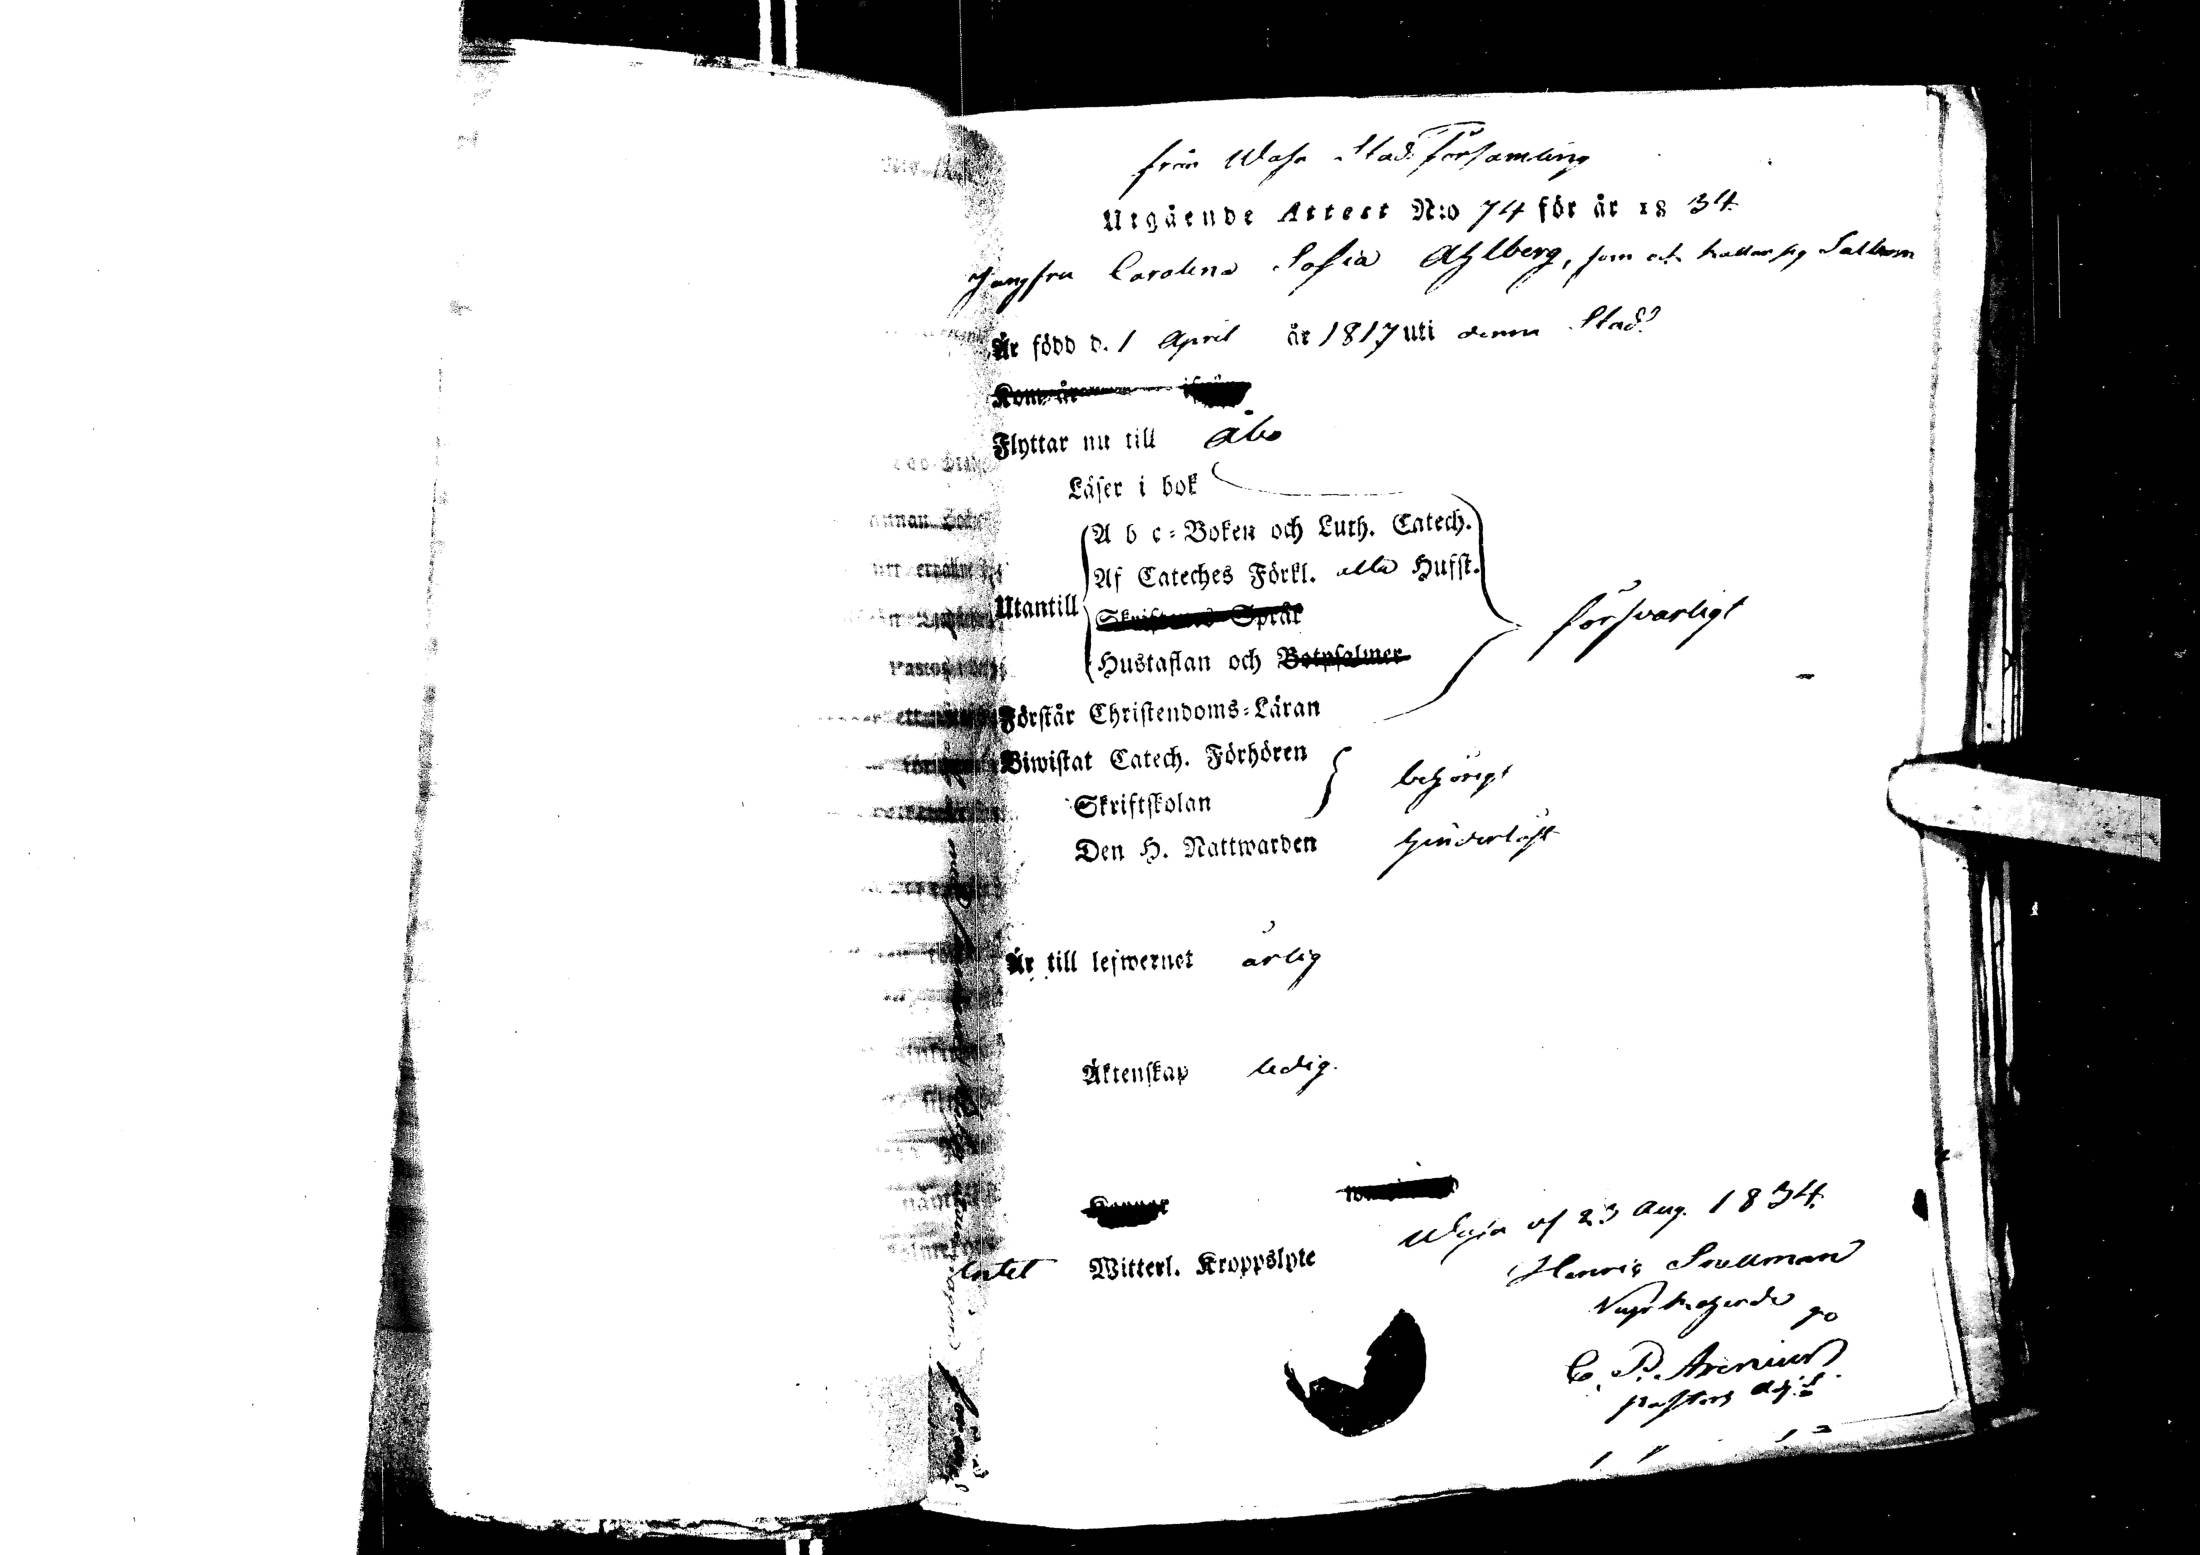 från Wasa Stads Församling
Utgående Attest N:o 74 för år 1834.
Jungfru Carolina Sofia Ahlberg, som och kallar sig
Är född d. 1 April år 1817 uti denna Stad.
Kom år ifrån
Flyttar nu till Åbo
Läser i bok
A b c-Boken och Luth. Catech.
Af Cateches Förkl. alla Hufst.
Utantill
Skriftenes Språk
försvarligt
Hustaflan och Botpsalmer
Förstår Christendoms-Läran
Biwistat Catech. Förhören
behörigt
Skriftskolan
Den H. Nattwarden hinderlöst
Är till lefwernet ärlig
Äktenskap ledig.
Wasa af 23 Aug. 1834.
Intet Witterl. Kroppslyte
Henric Snellman
C. P. Arenius
pastors adj.